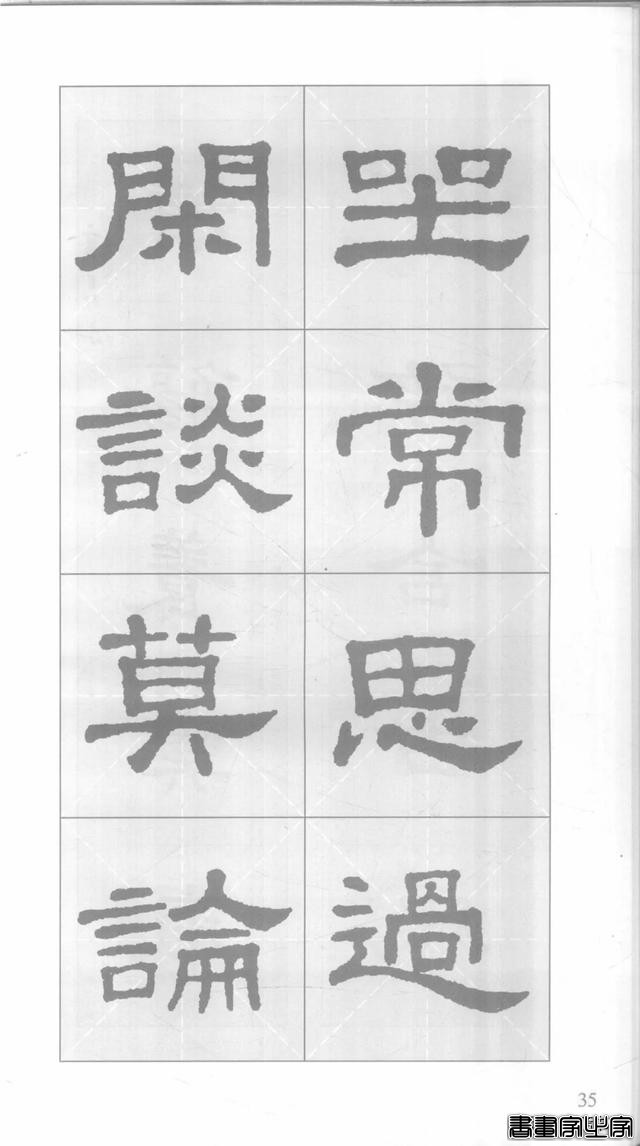 坐常思過
閑談莫論
35
書畫字典